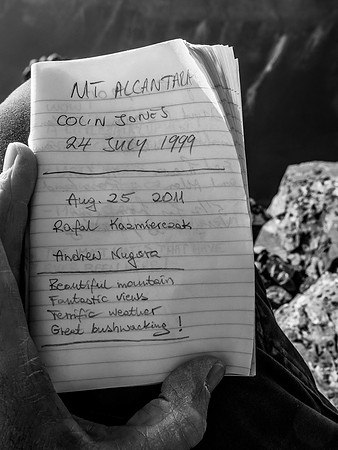 MT ALCANTARA
COLIN JONES
24 JULY 1999
Aug. 25 2011
Rafal Kazmierczak
Andrew Nugara
Beautiful mountain
Fantastic views
Terrific weather
Great bushwacking!